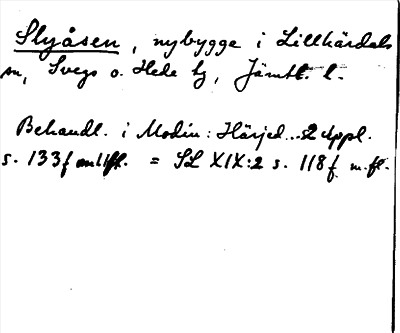 Slyåsen, nybygge i Lillhärdals
sn, Svegs o. Hede tg, Jämtl. l.
Behandl. i Modin: Härjed... 2 Appl.
s. 133 f m. fl. = SL XIX:2 s. 118 f. m. fl.